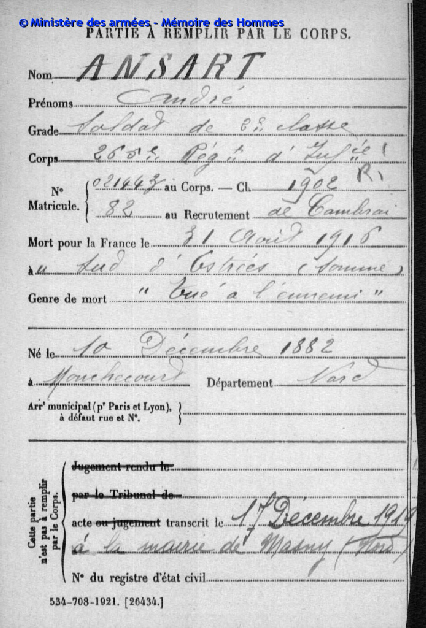 © Ministère des armées - Mémoire des Hommes
PARTIE À REMPLIR PAR LE CORPS.
Nom ANSART
Prénoms André
Grade Soldat de 2e classe
Corps Régt d'Infie
R.I
No 021447 au Corps. — Cl. 1902
Matricule. 82 au Recrutement de Cambrai
Mort pour la France le 31 Août 1916
à " Sud d'Estrées (Somme)
Genre de mort " Tué à l'ennemi "
Né le 10 Décembre 1882
à Monchecourt Département Nord
Arrt municipal (pr Paris et Lyon),
à défaut rue et No.
Cette partie
n'est pas à remplir
par le Corps.
Jugement rendu le
par le Tribunal de
acte ou jugement transcrit le 17 Décembre 1919
à la mairie de Masny (Nord)
No du registre d'état civil
534-708-1921. [26434.]